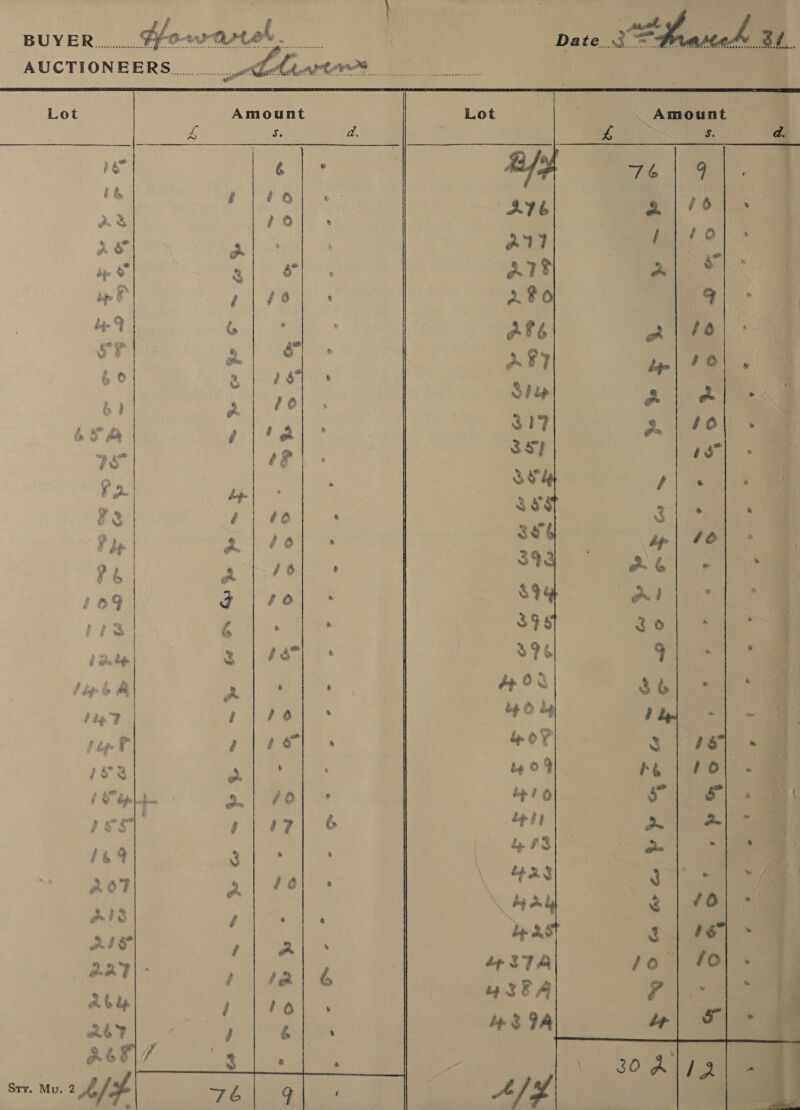 BUYER Howard. Date 3 March 31.
AUCTIONEERS
Lot Amount Lot Amount
£ s. d. £ s. d.
15 6 .
16 1 10 .
23 10 .
25 2 . .
45 3 5 .
48 1 10 .
49 6 . .
58 2 5 .
60 3 15 .
61 2 10 .
65A 1 12 .
75 18 .
82 4 . .
83 1 10 .
84 2 10 .
86 2 10 .
109 3 10 .
113 6 . .
124 3 15 .
146A 2 . .
147 1 10 .
148 1 15 .
153 2 . .
154 2 10 .
155 1 17 6
169 3 . .
207 2 10 .
213 1 . .
215 1 2 .
227 1 12 6
264 1 10 .
267 1 6 .
268 3 . .
Sty. Mu. 2 76 9 .
B/F 76 9 .
276 2 10 .
277 1 10 .
278 2 5 .
280 9 .
286 2 10 .
287 4 10 .
314 2 2 .
317 2 10 .
351 15 .
354 1 . .
355 3 . .
356 4 10 .
393 26 . .
394 21 . .
395 30 . .
396 9 . .
403 36 . .
404 14 . .
408 3 15 .
409 16 10 .
410 5 5 .
411 2 2 .
413 2 . .
423 3 . .
424 2 10 .
425 3 15 .
437A 10 10 .
438A 8 . .
439A 4 5 .
302 12 -